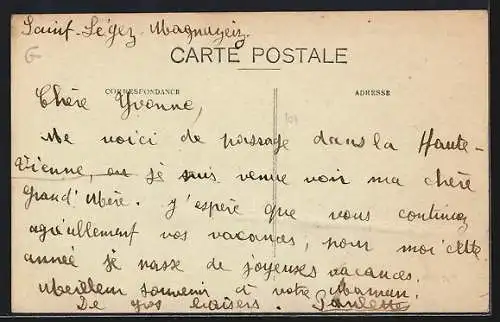 Saint-Léger-Magnazeix
G
CARTE POSTALE
CORRESPONDANCE
ADRESSE
Chère Yvonne,
Me voici de passage dans la Haute-
Vienne, où je suis venue voir ma chère
Grand' Mère. J'espère que vous continuez
agréablement vos vacances, pour moi cette
année je passe de joyeuses vacances.
Meilleur souvenir à votre Maman.
De gros baisers. Paulette